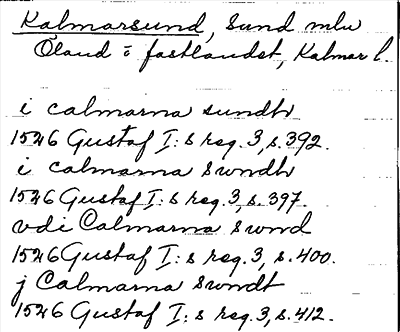 Kalmarsund, sund mlu
Öland o fastlandet, Kalmar l.
i calmarna sundh
1526 Gustaf I:s reg. 3, s. 392.
i calmarna swndh
1526 Gustaf I:s reg. 3, s. 397.
vdi Calmarna swnd
1526 Gustaf I:s reg. 3, s. 400.
j Calmarna swndt
1526 Gustaf I:s reg. 3, s. 412.